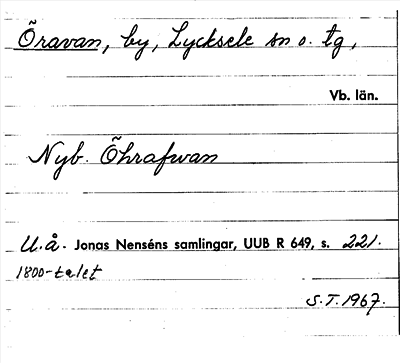 Öravan, by, Lycksele sn o. tg,
Vb. län.
Nyb. Öhrafwan
U.å. Jonas Nenséns samlingar, UUB R 649, s. 221.
1800-talet
S.T. 1967.